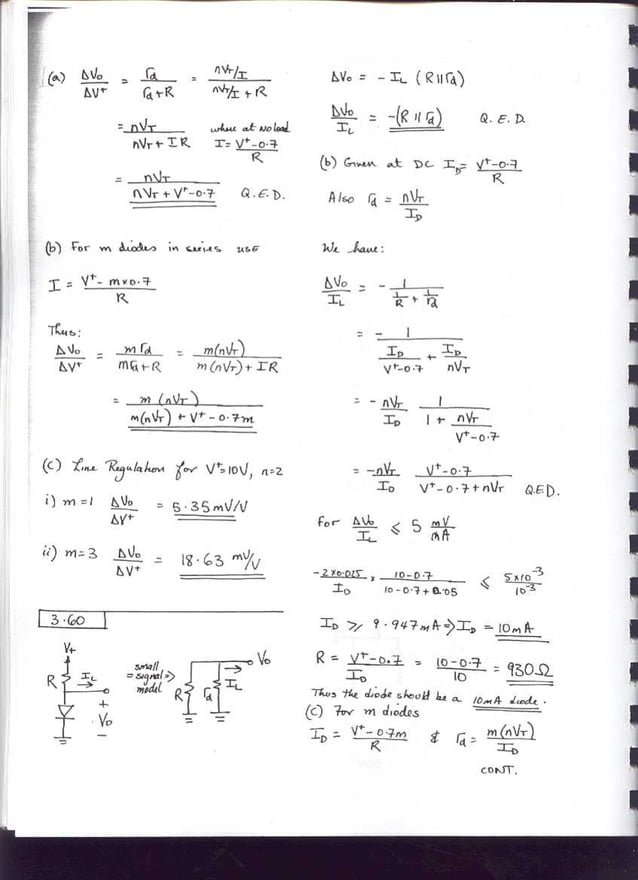 (a) ΔVo/ΔV+ = rd/(rd+R) = (nVT/I)/(nVT/I + R)
= nVT/(nVT + IR) where at No load I = (V+-0.7)/R
= nVT/(nVT + V+-0.7) Q.E.D.
(b) For m diodes in series use
I = (V+- m×0.7)/R
Thus:
ΔVo/ΔV+ = m rd/(mrd+R) = m(nVT)/(m(nVT) + IR)
= m(nVT)/(m(nVT) + V+ - 0.7m)
(c) Line Regulation for V+=10V, n=2
i) m=1 ΔVo/ΔV+ = 5.35mV/V
ii) m=3 ΔVo/ΔV+ = 18.63 mV/V
3.60
V+
R
IL
+
Vo
-
small
= signal =>
model
R
rd
IL
Vo
ΔVo = - IL (R || rd)
ΔVo/IL = -(R || rd) Q.E.D.
(b) Given at DC ID = (V+-0.7)/R
Also rd = nVT/ID
We have:
ΔVo/IL = - 1/(1/R + 1/rd)
= - 1/(ID/(V+-0.7) + ID/nVT)
= - nVT/ID 1/(1 + nVT/(V+-0.7))
= -nVT/ID (V+-0.7)/(V+-0.7+nVT) Q.E.D.
For ΔVo/IL ≤ 5 mV/mA
-2×0.025/ID × (10-0.7)/(10-0.7+0.05) ≤ 5×10-3/10-3
ID ≥ 9.947mA => ID = 10mA
R = (V+-0.7)/ID = (10-0.7)/10 = 930Ω
Thus the diode should be a 10mA diode.
(c) For m diodes
ID = (V+-0.7m)/R & rd = m(nVT)/ID
CONT.